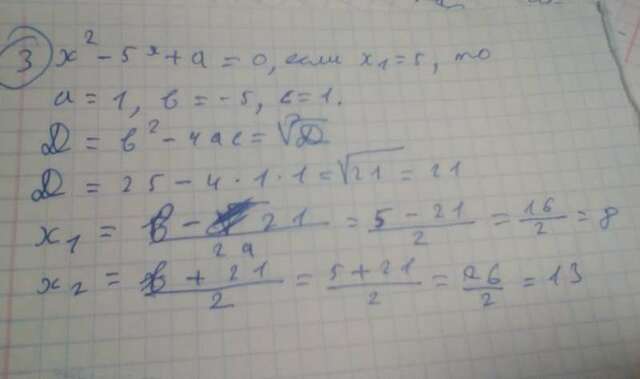 3 x² - 5x + a = 0, если x₁ = 5, то
a = 1, b = -5, c = 1.
D = b² - 4ac = √D
D = 25 - 4 · 1 · 1 = √21 = 21
x₁ = b - 21 / 2a = 5 - 21 / 2 = 16 / 2 = 8
x₂ = b + 21 / 2 = 5 + 21 / 2 = 26 / 2 = 13